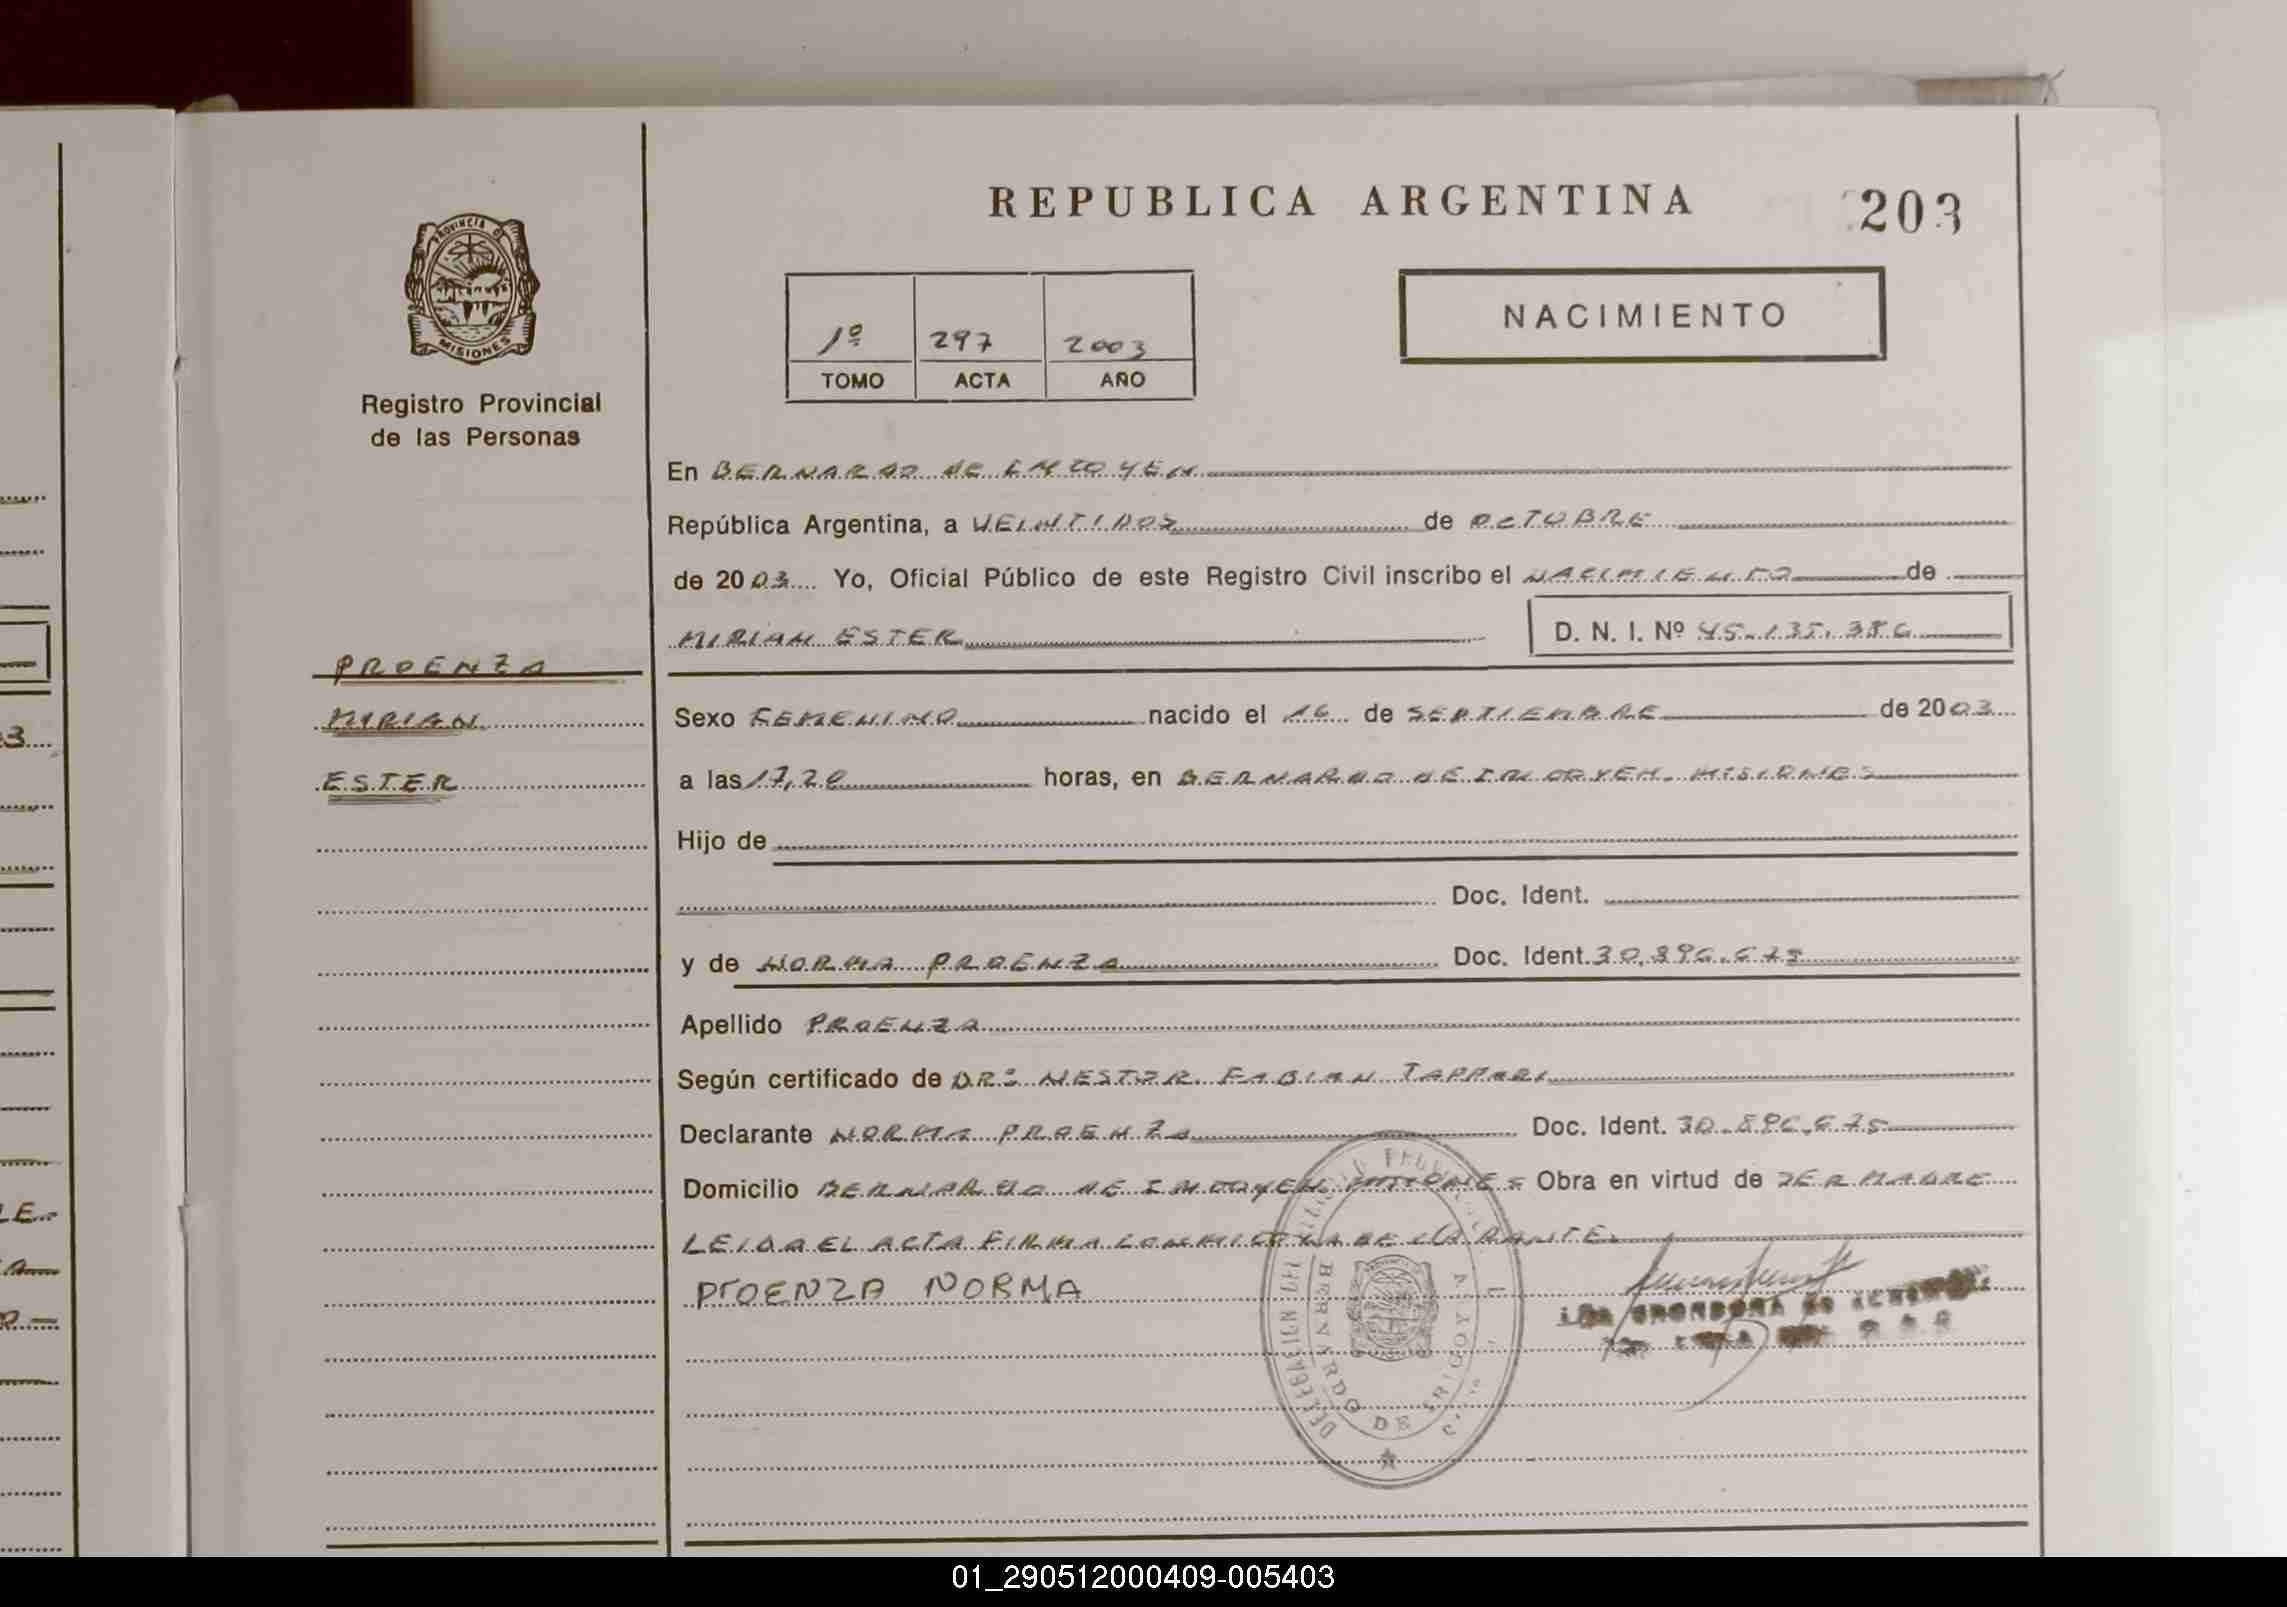 REPUBLICA ARGENTINA
203
PROVINCIA DE
MISIONES
Registro Provincial
de las Personas
1º 297 2003
TOMO ACTA AÑO
NACIMIENTO
En BERNARDO DE IRIGOYEN
República Argentina, a VEINTIDOS de OCTUBRE
de 2003 Yo, Oficial Público de este Registro Civil inscribo el NACIMIENTO de
MIRIAN ESTER D. N. I. Nº 45.135.386
PROENZA
MIRIAN
ESTER
Sexo FEMENINO nacido el 16 de SEPTIEMBRE de 2003
a las 17,20 horas, en BERNARDO DE IRIGOYEN. MISIONES
Hijo de
Doc. Ident.
y de NORMA PROENZA Doc. Ident. 30.896.675
Apellido PROENZA
Según certificado de DR: NESTOR FABIAN TAPPARI
Declarante NORMA PROENZA Doc. Ident. 30.896.675
Domicilio BERNARDO DE IRIGOYEN MISIONES Obra en virtud de SER MADRE
LEIDA EL ACTA FIRMA CONMIGO LA DECLARANTE.
PrOENZA NORMA
DELEGACION DEL REGISTRO PROVINCIAL
BERNARDO DE IRIGOYEN
01_290512000409-005403